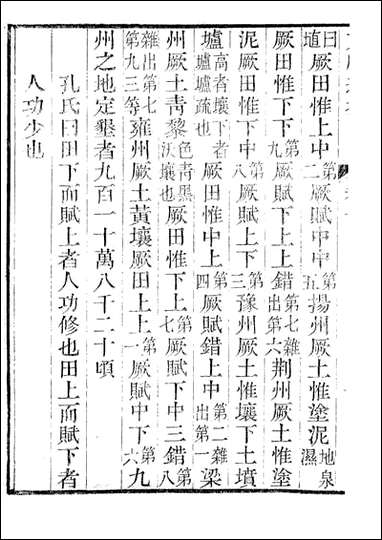 曰埴厥田惟上中第二厥賦中中第五揚州厥土惟塗泥地泉濕
厥田惟下下第九厥賦下上上錯第七雜出第六荆州厥土惟塗
泥厥田惟下中第八厥賦上下第三豫州厥土惟壤下土墳
壚高者壤下者壚壚疏也厥田惟中上第四厥賦錯上中第二雜出第一梁
州厥土青黎色青黑沃壤也厥田惟下上第七厥賦下中三錯第八
雜出第七第九三等雍州厥土黃壤厥田上上第一厥賦中下第六九
州之地定墾者九百一十萬八千二十頃
孔氏曰田下而賦上者人功修也田上而賦下者
人功少也